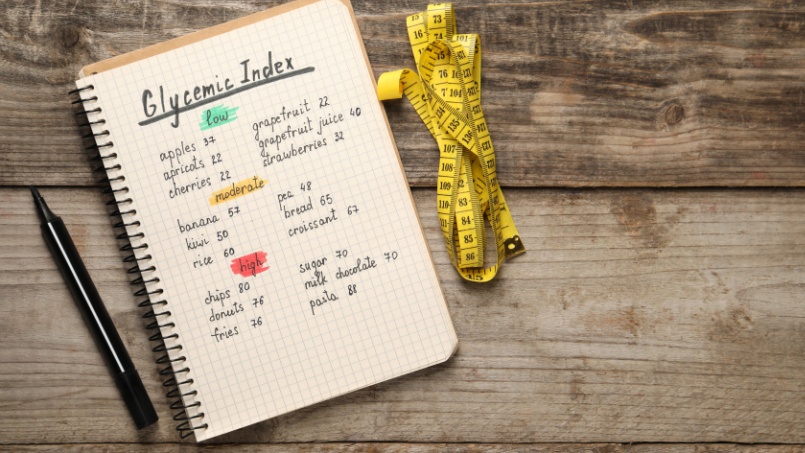 Glycemic Index
low
apples 37
apricots 22
cherries 22
grapefruit 22
grapefruit juice 40
strawberries 32
moderate
banana 57
kiwi 50
rice 60
pea 48
bread 65
croissant 67
high
chips 80
donuts 76
fries 76
sugar 70
milk chocolate 70
pasta 88
73
16
15
76
107
108
109
83
84
85
86